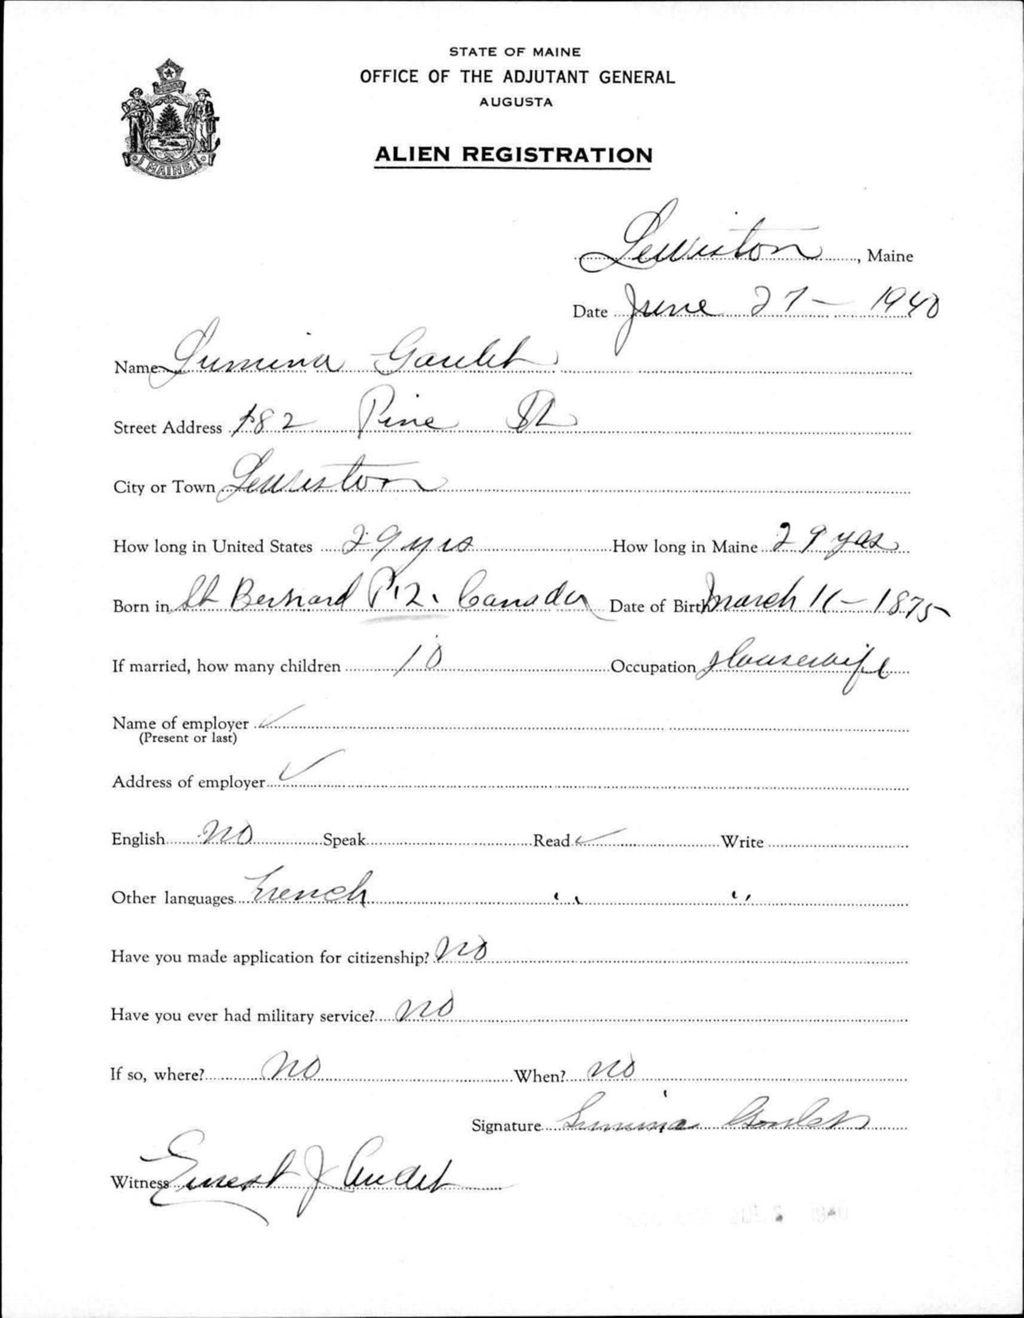 STATE OF MAINE
OFFICE OF THE ADJUTANT GENERAL
AUGUSTA
ALIEN REGISTRATION
MAINE
Lewiston, Maine
Date June 27 - 1940
Name Lumina Goulet
Street Address 182 Pine St
City or Town Lewiston
How long in United States 29 yrs How long in Maine 29 yrs
Born in St Bernard P.Q. Canada Date of Birth March 11 - 1875
If married, how many children 10 Occupation Housewife
Name of employer ✓
(Present or last)
Address of employer ✓
English no Speak Read ✓ Write
Other languages French " "
Have you made application for citizenship? No
Have you ever had military service? no
If so, where? No When? no
Signature Lumina Goulet
Witness Ernest J Audet